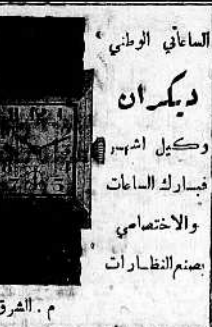 الساعاتي الوطني
ديكران
وكيل اشهر
فبارك الساعات
والاختصاصي
بصنع النظارات
م. الشرق